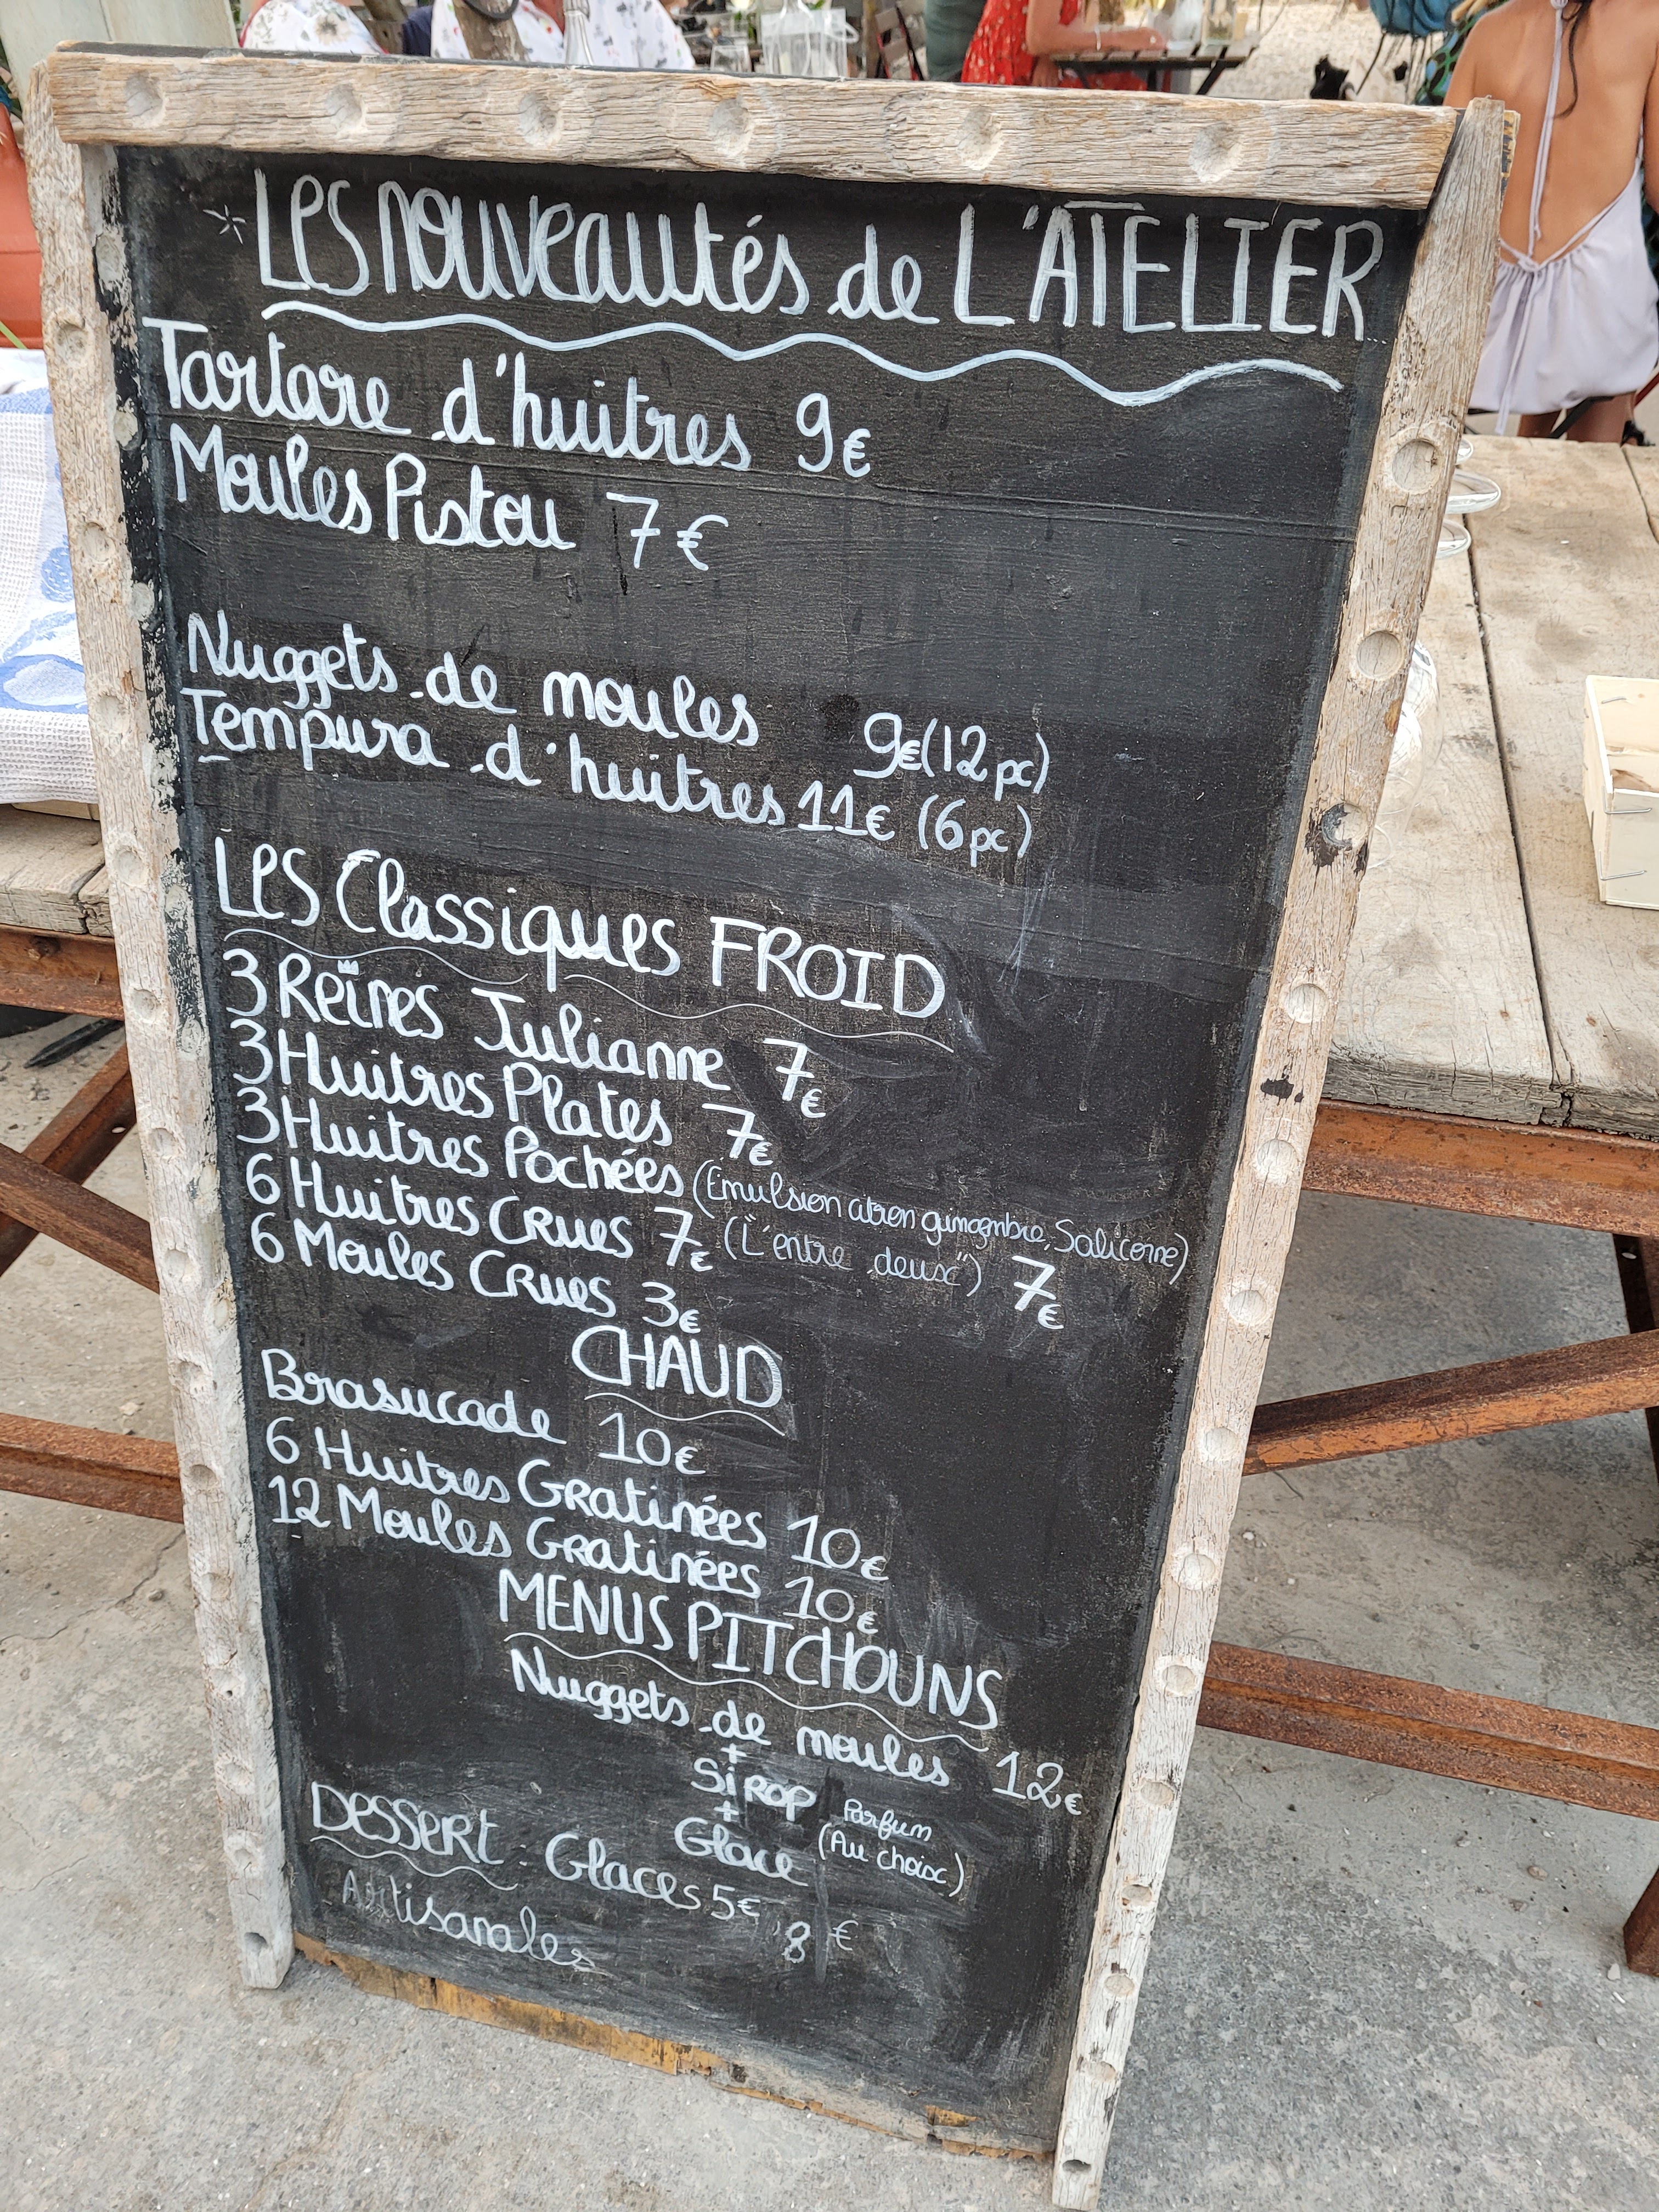 Les nouveautés de L'ATELIER
Tartare d'huitres 9€
Moules Pistou 7€
Nuggets de moules 9€ (12 pc)
Tempura d'huitres 11€ (6 pc)
Les Classiques FROID
3 Reines Julianne 7€
3 Huitres Plates 7€
3 Huitres Pochées (Emulsion citron gingembre, Salicorne) 7€
6 Huitres Crues 7€ ("L'entre deux")
6 Moules Crues 3€
CHAUD
Brasucade 10€
6 Huitres Gratinées 10€
12 Moules Gratinées 10€
MENUS PITCHOUNS
Nuggets de moules 12€
+
SIROP
+
Glace Parfum (Au choix)
DESSERT : Glaces 5€
Artisanales 8€